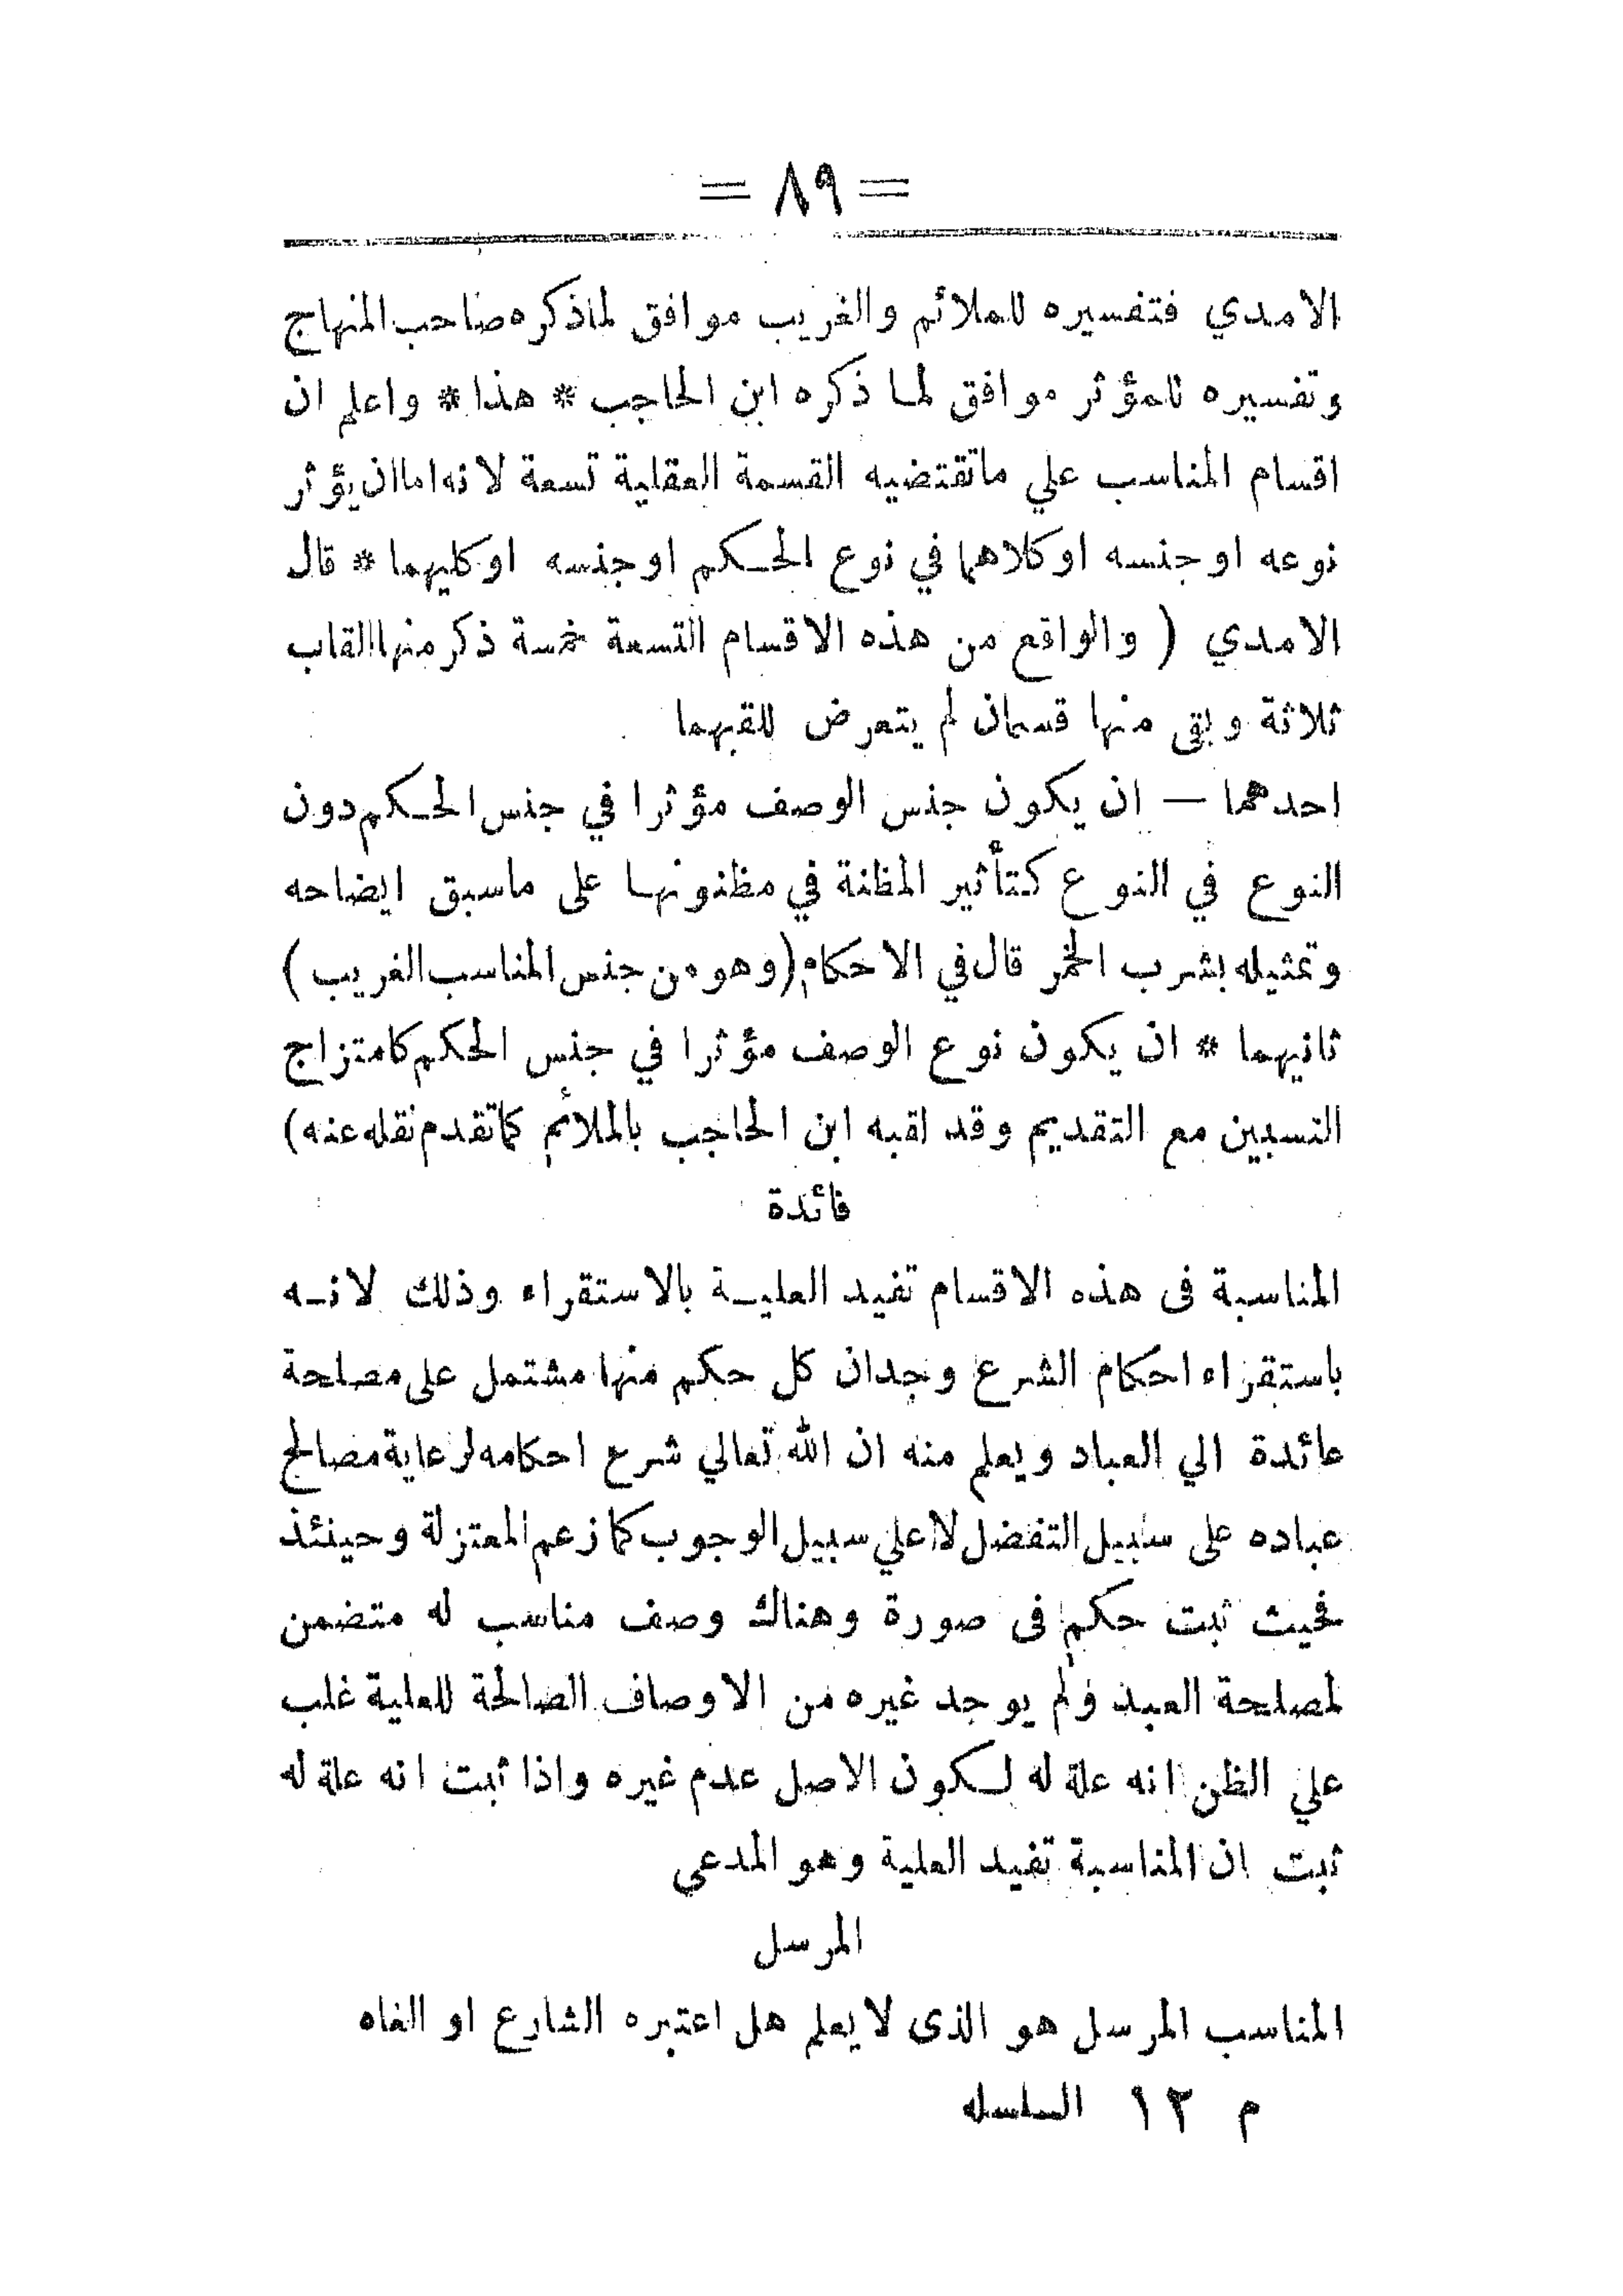 = ٨٩ =
الامدي فتفسيره للملائم والغريب موافق لماذكره صاحب المنهاج
وتفسيره للمؤثر موافق لما ذكره ابن الحاجب * هذا * واعلم ان
اقسام المناسب علي ماتقتضيه القسمة العقلية تسعة لانه اما ان يؤثر
نوعه او جنسه او كلاهما في نوع الحكم او جنسه او كليهما * قال
الامدي ( والواقع من هذه الاقسام التسعة خمسة ذكر منها القاب
ثلاثة وبقى منها قسمان لم يتعرض للقبهما
احدهما — ان يكون جنس الوصف مؤثرا في جنس الحكم دون
النوع في النوع كتأثير المظنة في مظنونها على ماسبق ايضاحه
وتمثيله بشرب الخمر قال في الاحكام (وهو من جنس المناسب الغريب)
ثانيهما * ان يكون نوع الوصف مؤثرا في جنس الحكم كامتزاج
النسبين مع التقديم وقد لقبه ابن الحاجب بالملائم كما تقدم نقله عنه)
فائدة
المناسبة فى هذه الاقسام تفيد العلية بالاستقراء وذلك لانه
باستقراء احكام الشرع وجدان كل حكم منها مشتمل على مصلحة
عائدة الي العباد ويعلم منه ان الله تعالي شرع احكامه لرعاية مصالح
عباده على سبيل التفضل لا علي سبيل الوجوب كما زعم المعتزلة وحينئذ
فحيث ثبت حكم فى صورة وهناك وصف مناسب له متضمن
لمصلحة العبد ولم يوجد غيره من الاوصاف الصالحة للعلية غلب
علي الظن انه علة له لكون الاصل عدم غيره واذا ثبت انه علة له
ثبت ان المناسبة تفيد العلية وهو المدعي
المرسل
المناسب المرسل هو الذى لا يعلم هل اعتبره الشارع او الغاه
م ١٢ السلسله